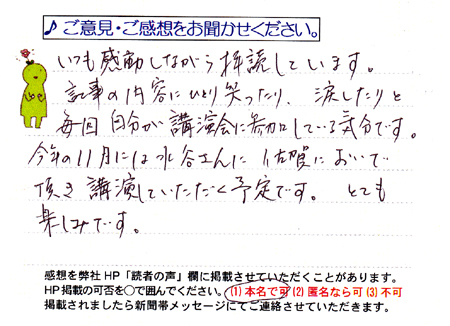 ♪ご意見・ご感想をお聞かせください。
いつも感動しながら拝読しています。
記事の内容にひとり笑ったり、涙したりと
毎回自分が講演会に参加している気分です。
今年の11月には水谷さんに佐賀においで
頂き講演していただく予定です。とても
楽しみです。
感想を弊社HP「読者の声」欄に掲載させていただくことがあります。
HP掲載の可否を○で囲んでください。(1)本名で可(2)匿名なら可(3)不可
掲載されましたら新聞帯メッセージにてご連絡させていただきます。